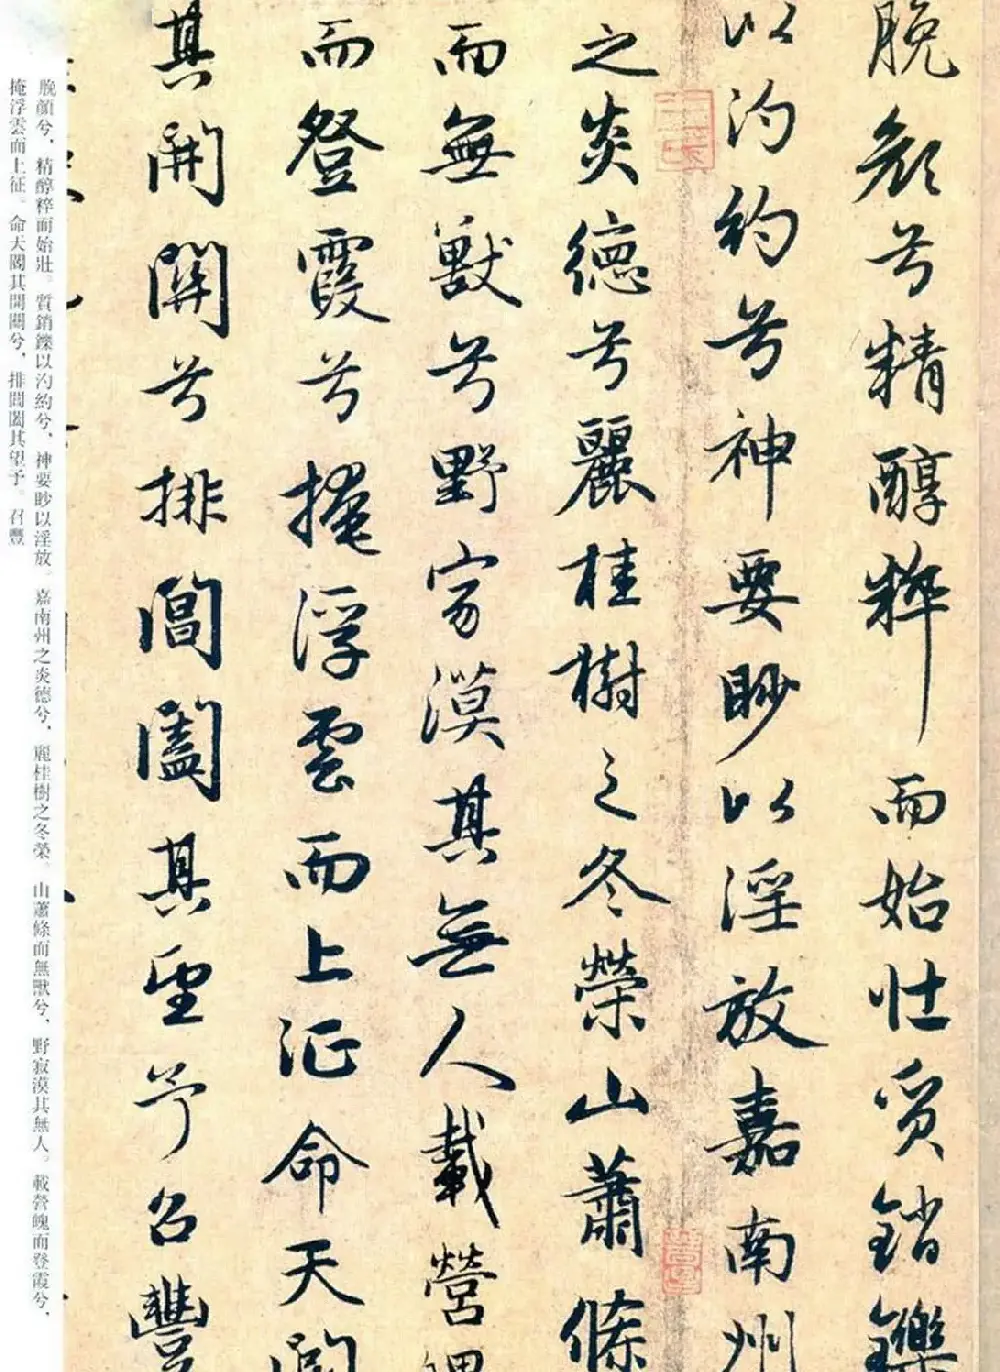 脕顔兮精醇粹而始壮質銷鑠
以汋約兮神要眇以淫放嘉南州
之炎德兮麗桂樹之冬榮山蕭條
而無獸兮野寂漠其無人載營魄
而登霞兮掩浮雲而上征命天閽
其開關兮排閶闔其望予召豐
脕顔兮，精醇粹而始壯。質銷鑠以汋約兮，神要眇以淫放。嘉南州之炎德兮，麗桂樹之冬榮。山蕭條而無獸兮，野寂漠其無人。載營魄而登霞兮，
掩浮雲而上征。命天閽其開關兮，排閶闔其望予。召豐